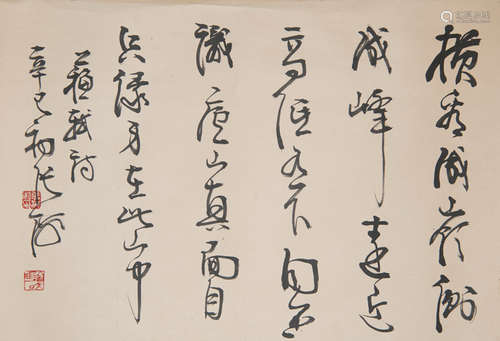 横看成岭侧
成峰远近
高低各不同不
識庐山真面目
只缘身在此山中
苏轼诗
辛巳初